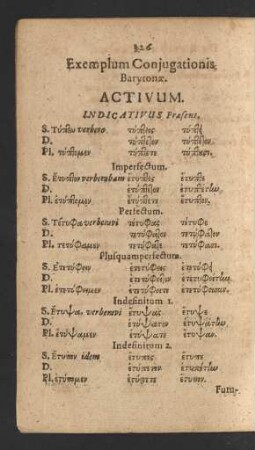 326
Exemplum Conjugationis
Barytonæ.
ACTIVUM.
INDICATIVUS Præsens.
S. τύπτω verbero τύπτεις τύπτει
D. τύπτετον τύπτετον
Pl. τύπτομεν τύπτετε τύπτουσι.
Imperfectum.
S. ἔτυπτον verberabam ἔτυπτες ἔτυπτε
D. ἐτύπτετον ἐτυπτέτην
Pl. ἐτύπτομεν ἐτύπτετε ἔτυπτον.
Perfectum.
S. τέτυφα verberavi τέτυφας τέτυφε
D. τετύφατον τετύφατον
Pl. τετύφαμεν τετύφατε τετύφασι.
Plusquamperfectum.
S. ἐτετύφειν ἐτετύφεις ἐτετύφει
D. ἐτετύφειτον ἐτετυφείτην
Pl. ἐτετύφειμεν ἐτετύφειτε ἐτετύφεισαν.
Indefinitum 1.
S. ἔτυψα verberavi ἔτυψας ἔτυψε
D. ἐτύψατον ἐτυψάτην
Pl. ἐτύψαμεν ἐτύψατε ἔτυψαν.
Indefinitum 2.
S. ἔτυπον idem ἔτυπες ἔτυπε
D. ἐτύπετον ἐτυπέτην
Pl. ἐτύπομεν ἐτύπετε ἔτυπον.
Futu-